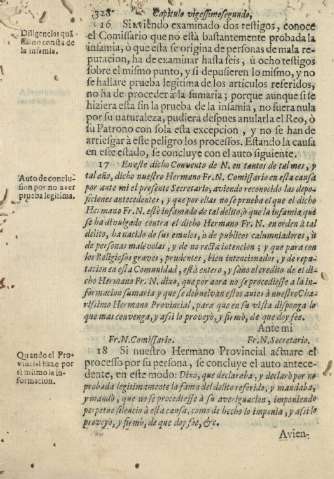 328 Capitulo vigessimosegundo,
16 Si aviendo examinado dos testigos, conoce
Diligencias quã
do no consta de
la infamia.
el Comissario que no està bastantemente probada la
infamia, ò que esta se origina de personas de mala re-
putacion, ha de examinar hasta seis, ù ocho testigos
sobre el mismo punto, y si depusieren lo mismo, y no
se hallare prueba legitima de los articulos referidos,
no ha de proceder à la sumaria; porque aunque si se
hiziera esta sin la prueba de la infamia, no fuera nula
por su naturaleza, pudiera despues anularla el Reo, ò
su Patrono con sola esta excepcion, y no se han de
arriesgar à este peligro los processos. Estando la causa
en este estado, se concluye con el auto siguiente.
17 En este dicho Convento de N. en tantos de tal mes, y
Auto de conclu-
sion por no aver
prueba legitima.
tal año, dicho nuestro Hermano Fr. N. Comissario en esta causa
por ante mi el presente Secretario, aviendo reconocido las depo-
siciones antecedentes, y que por ellas no se prueba el que el dicho
Hermano Fr. N. estè infamado de tal delito, ò que la infamia que
se ha divulgado contra el dicho Hermano Fr. N. en orden à tal
delito, ha nacido de sus emulos, ù de publicos calumniadores, ù
de personas malevolas, y de no recta intencion; y que para con
los Religiosos graves, prudentes, bien intencionados, y de repu-
tacion en esta Comunidad, està entero, y sano el credito de el di-
cho Hermano Fr. N. dixo, que por aora no se procediesse à la in-
formacion sumaria y que se debuelvan estos autos à nuestro Cha-
rissimo Hermano Provincial, para que en su vista disponga lo
que mas convenga, y assi lo proveyò, y firmò, de que doy fee.
Ante mi
Fr. N. Comissario. Fr. N. Secretario.
Quando el Pro-
vincial haze por
sì mismo la in-
formacion.
18 Si nuestro Hermano Provincial actuare el
processo por su persona, se concluye el auto antece-
dente, en este modo: Dixo, que declaraba, y declarò por no
probada legitimamente la fama del delito referido, y mandaba,
y mandò, que no se procediesse à su averiguacion, imponiendo
perpetuo silencio à esta causa, como de hecho lo imponia, y assi lo
proveyò, y firmò, de que doy fee, &c.
Avien-